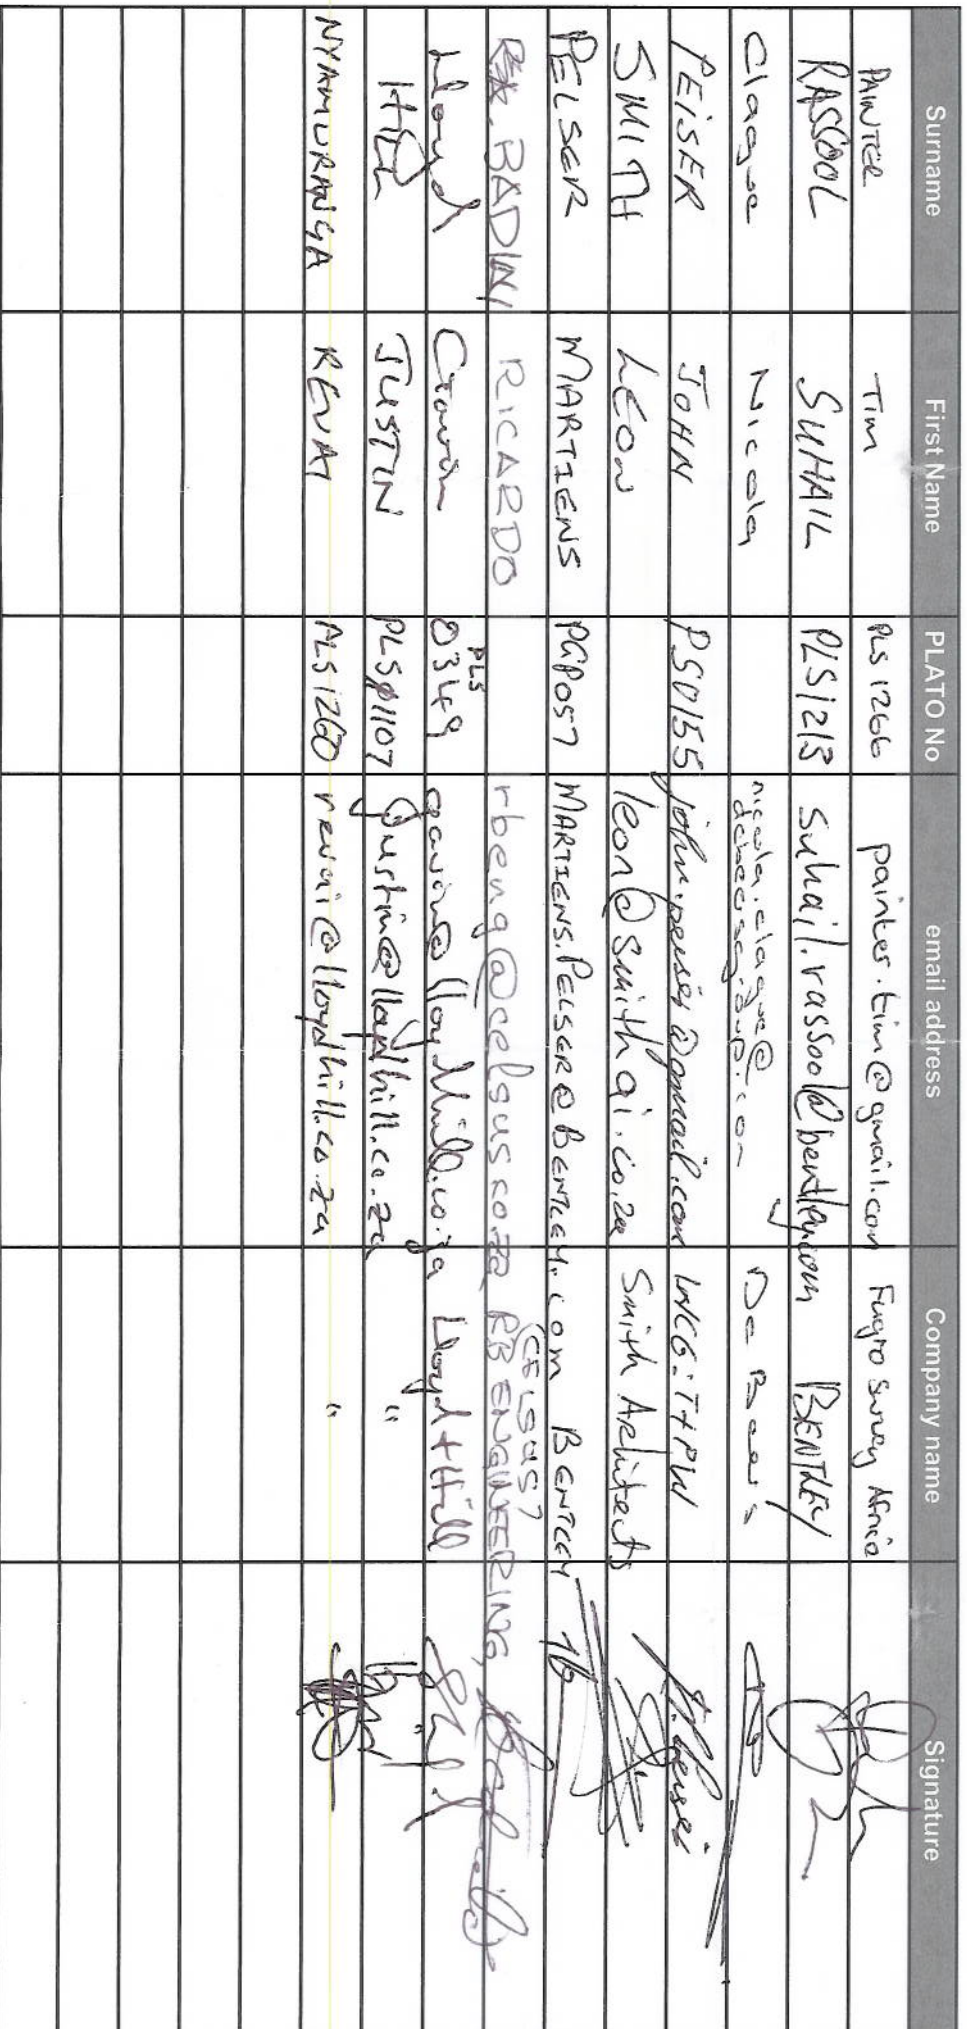 Surname First Name PLATO No email address Company name Signature
PAINTER Tim PLS 1266 painter.tim@gmail.com Fugro Survey Africa
RASSOOL SUHAIL PLS1213 suhail.rassool@bentley.com BENTLEY
Clague Nicola nicola.clague@
debeersgroup.com De Beers
PEISER JOHN PS0155 john.peiser@gmail.com WCG: T+PW
SMITH LEON leon@smithqi.co.za Smith Architects
PELSER MARTIENS PGP057 MARTIENS.PELSER@BENTLEY.COM BENTLEY
BADINI RICARDO rbeng@celsus.co.za RB ENGINEERING
(CELSUS)
Lloyd Gavin PLS
0349 gavin@lloydhill.co.za Lloyd + Hill
HILL JUSTIN PLS1107 justin@lloydhill.co.za "
NYAMURANGA RENAI PLS1260 renai@lloydhill.co.za "